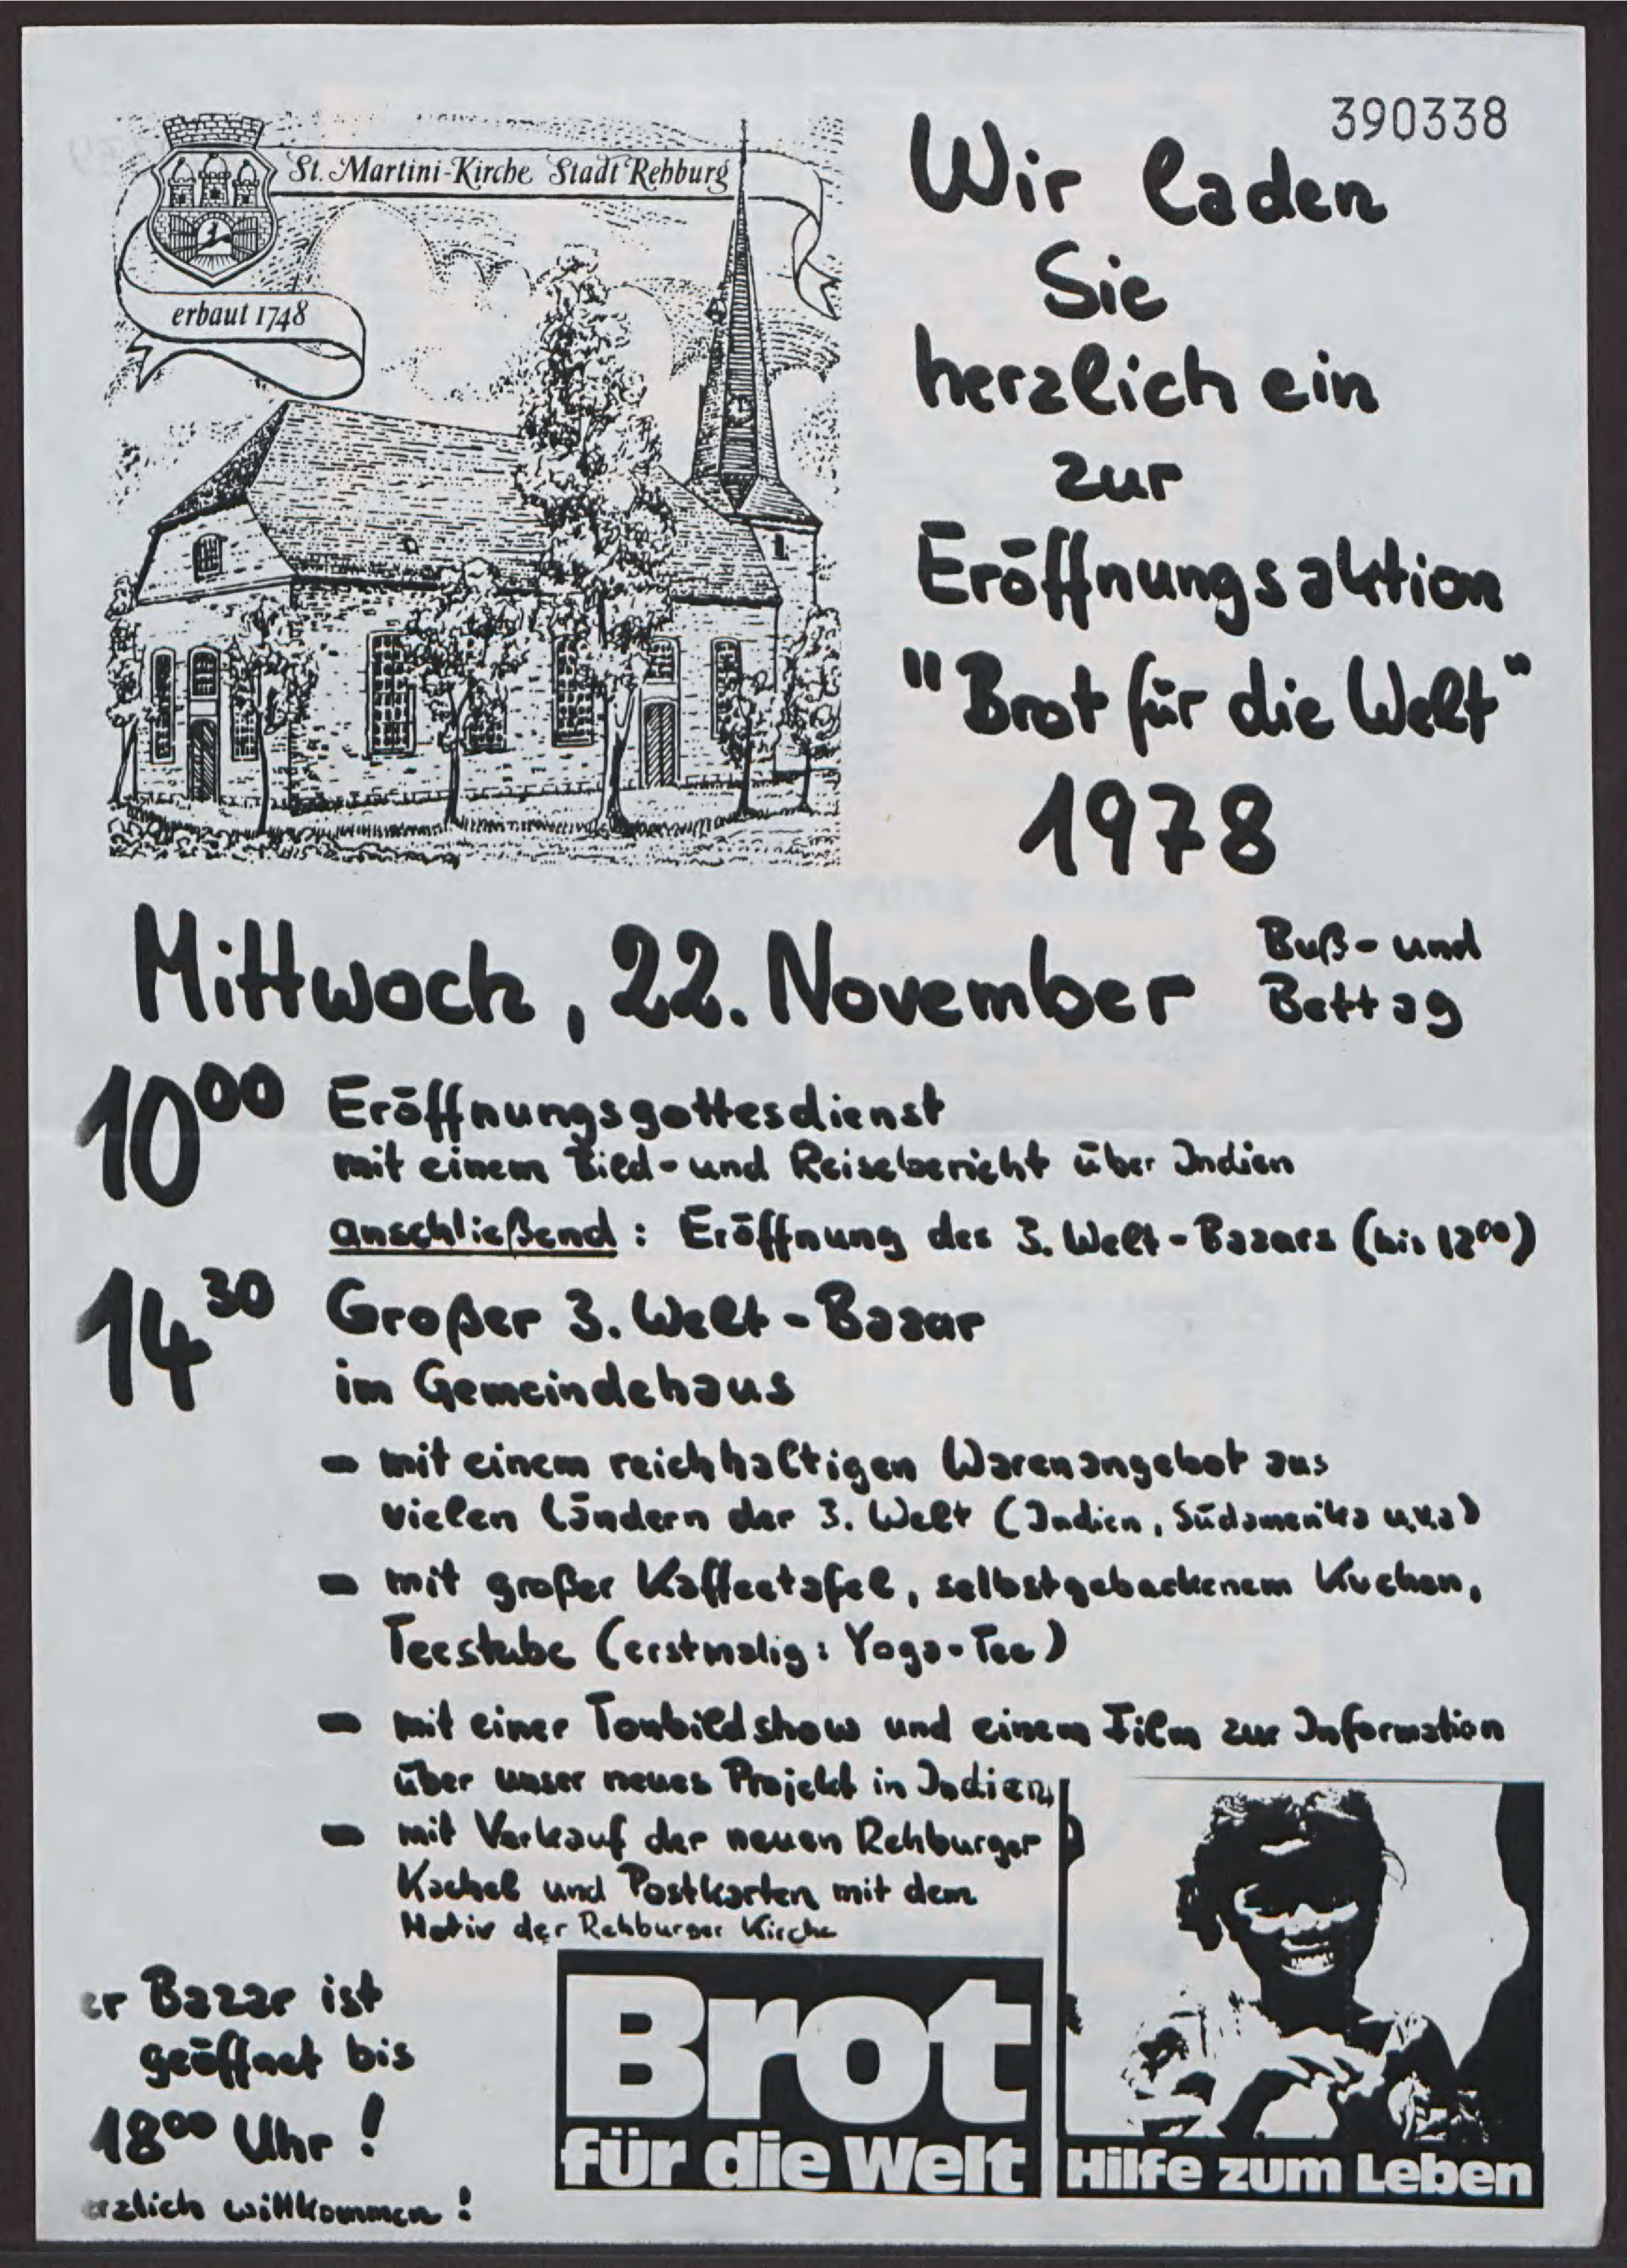 390338
St. Martini-Kirche Stadt Rehburg
erbaut 1748
Wir laden
Sie
herzlich ein
zur
Eröffnungsaktion
"Brot für die Welt"
1978
Mittwoch, 22. November Buß- und
Bettag
10⁰⁰ Eröffnungsgottesdienst
mit einem Bild- und Reisebericht über Indien
anschließend: Eröffnung des 3. Welt-Bazars (bis 12⁰⁰)
14³⁰ Großer 3. Welt-Bazar
im Gemeindehaus
- mit einem reichhaltigen Warenangebot aus
vielen Ländern der 3. Welt (Indien, Südamerika u.v.a)
- mit großer Kaffeetafel, selbstgebackenem Kuchen,
Teestube (erstmalig: Yoga-Tee)
- mit einer Tonbildshow und einem Film zur Information
über unser neues Projekt in Indien
- mit Verkauf der neuen Rehburger
Kachel und Postkarten mit dem
Motiv der Rehburger Kirche
er Bazar ist
geöffnet bis
18⁰⁰ Uhr!
erzlich willkommen!
Brot
für die Welt
Hilfe zum Leben